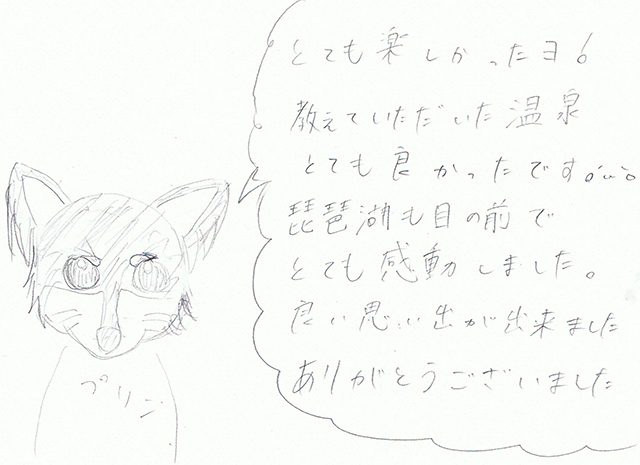 とても楽しかったヨ!
教えていただいた温泉
とても良かったです。・ω・。
琵琶湖も目の前で
とても感動しました。
良い思い出が出来ました
ありがとうございました
プリン